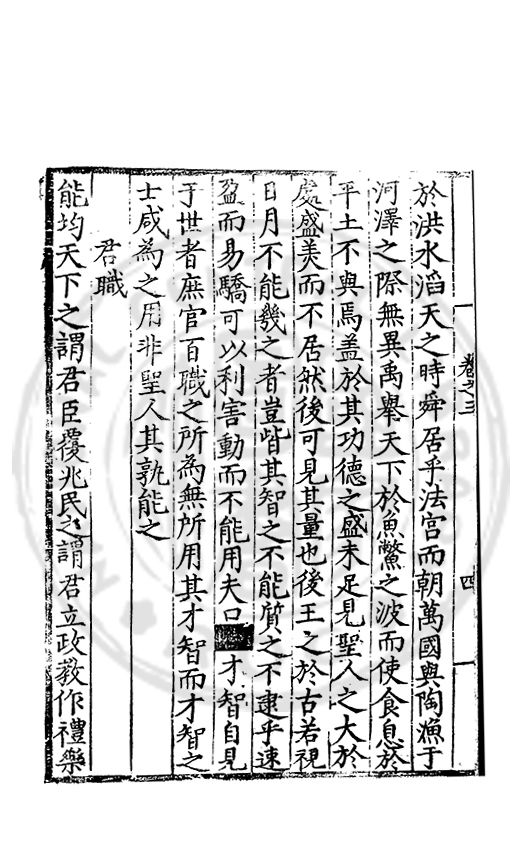 卷之三　四
於洪水滔天之時舜居乎法宮而朝萬國與陶漁于
河澤之際無異禹舉天下於魚鱉之波而使食息於
平土不與焉盖於其功德之盛未足見聖人之大於
處盛美而不居然後可見其量也後王之於古若視
日月不能幾之者豈皆其智之不能質之不逮乎速
盈而易驕可以利害動而不能用夫口才智自見
于世者庶官百職之所為無所用其才智而才智之
士咸為之用非聖人其孰能之
君職
能均天下之謂君臣覆兆民之謂君立政教作禮樂